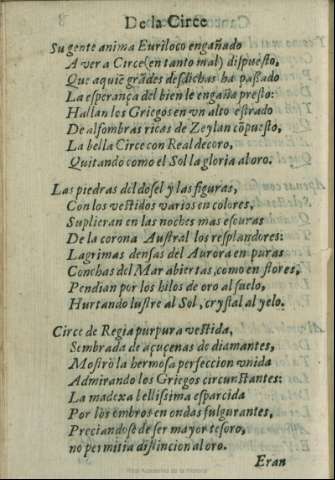 De la Circe
Su gente anima Euriloco engañado
A ver a Circe (en tanto mal) dispuesto,
Que a quiē grādes desdichas ha passado
La esperança del bien le engaña presto:
Hallan los Griegos en vn alto estrado
De alfombras ricas de Zeylan cōpuesto,
La bella Circe con Real decoro,
Quitando como el Sol la gloria al oro.
Las piedras del dosel y las figuras,
Con los vestidos varios en colores,
Suplieran en las noches mas escuras
De la corona Austral los resplandores:
Lagrimas densas del Aurora en puras
Conchas del Mar abiertas, como en flores,
Pendian por los hilos de oro al suelo,
Hurtando lustre al Sol, crystal al yelo.
Circe de Regia purpura vestida,
Sembrada de açuçenas de diamantes,
Mostrò la hermosa perfeccion vnida
Admirando los Griegos circunstantes:
La madexa bellissima esparcida
Por los ombros en ondas fulgurantes,
Preciandose de ser mayor tesoro,
no permitia distincion al oro.
Eran
Real Academia de la Historia